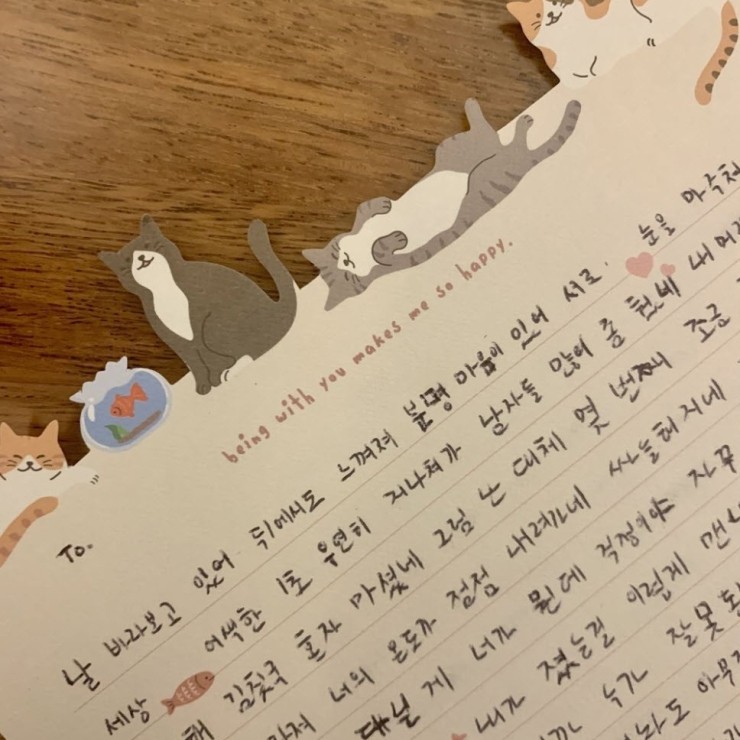 being with you makes me so happy.
To.
날 바라보고 있어 뒤에서도 느껴져 분명 마음이 있어 서로. 눈을 마주쳐
세상 어색한 1초 우연히 지나쳐가 남자들 많이 좀 쳤네 내
김칫국 혼자 마셨네 그럼 난 대체 몇 번째 조금
너의 온도가 점점 내려가네 싸늘해지네
게 너가 뭔데 걱정이야 자꾸
내가 졌는걸 이렇게
누가 잘못